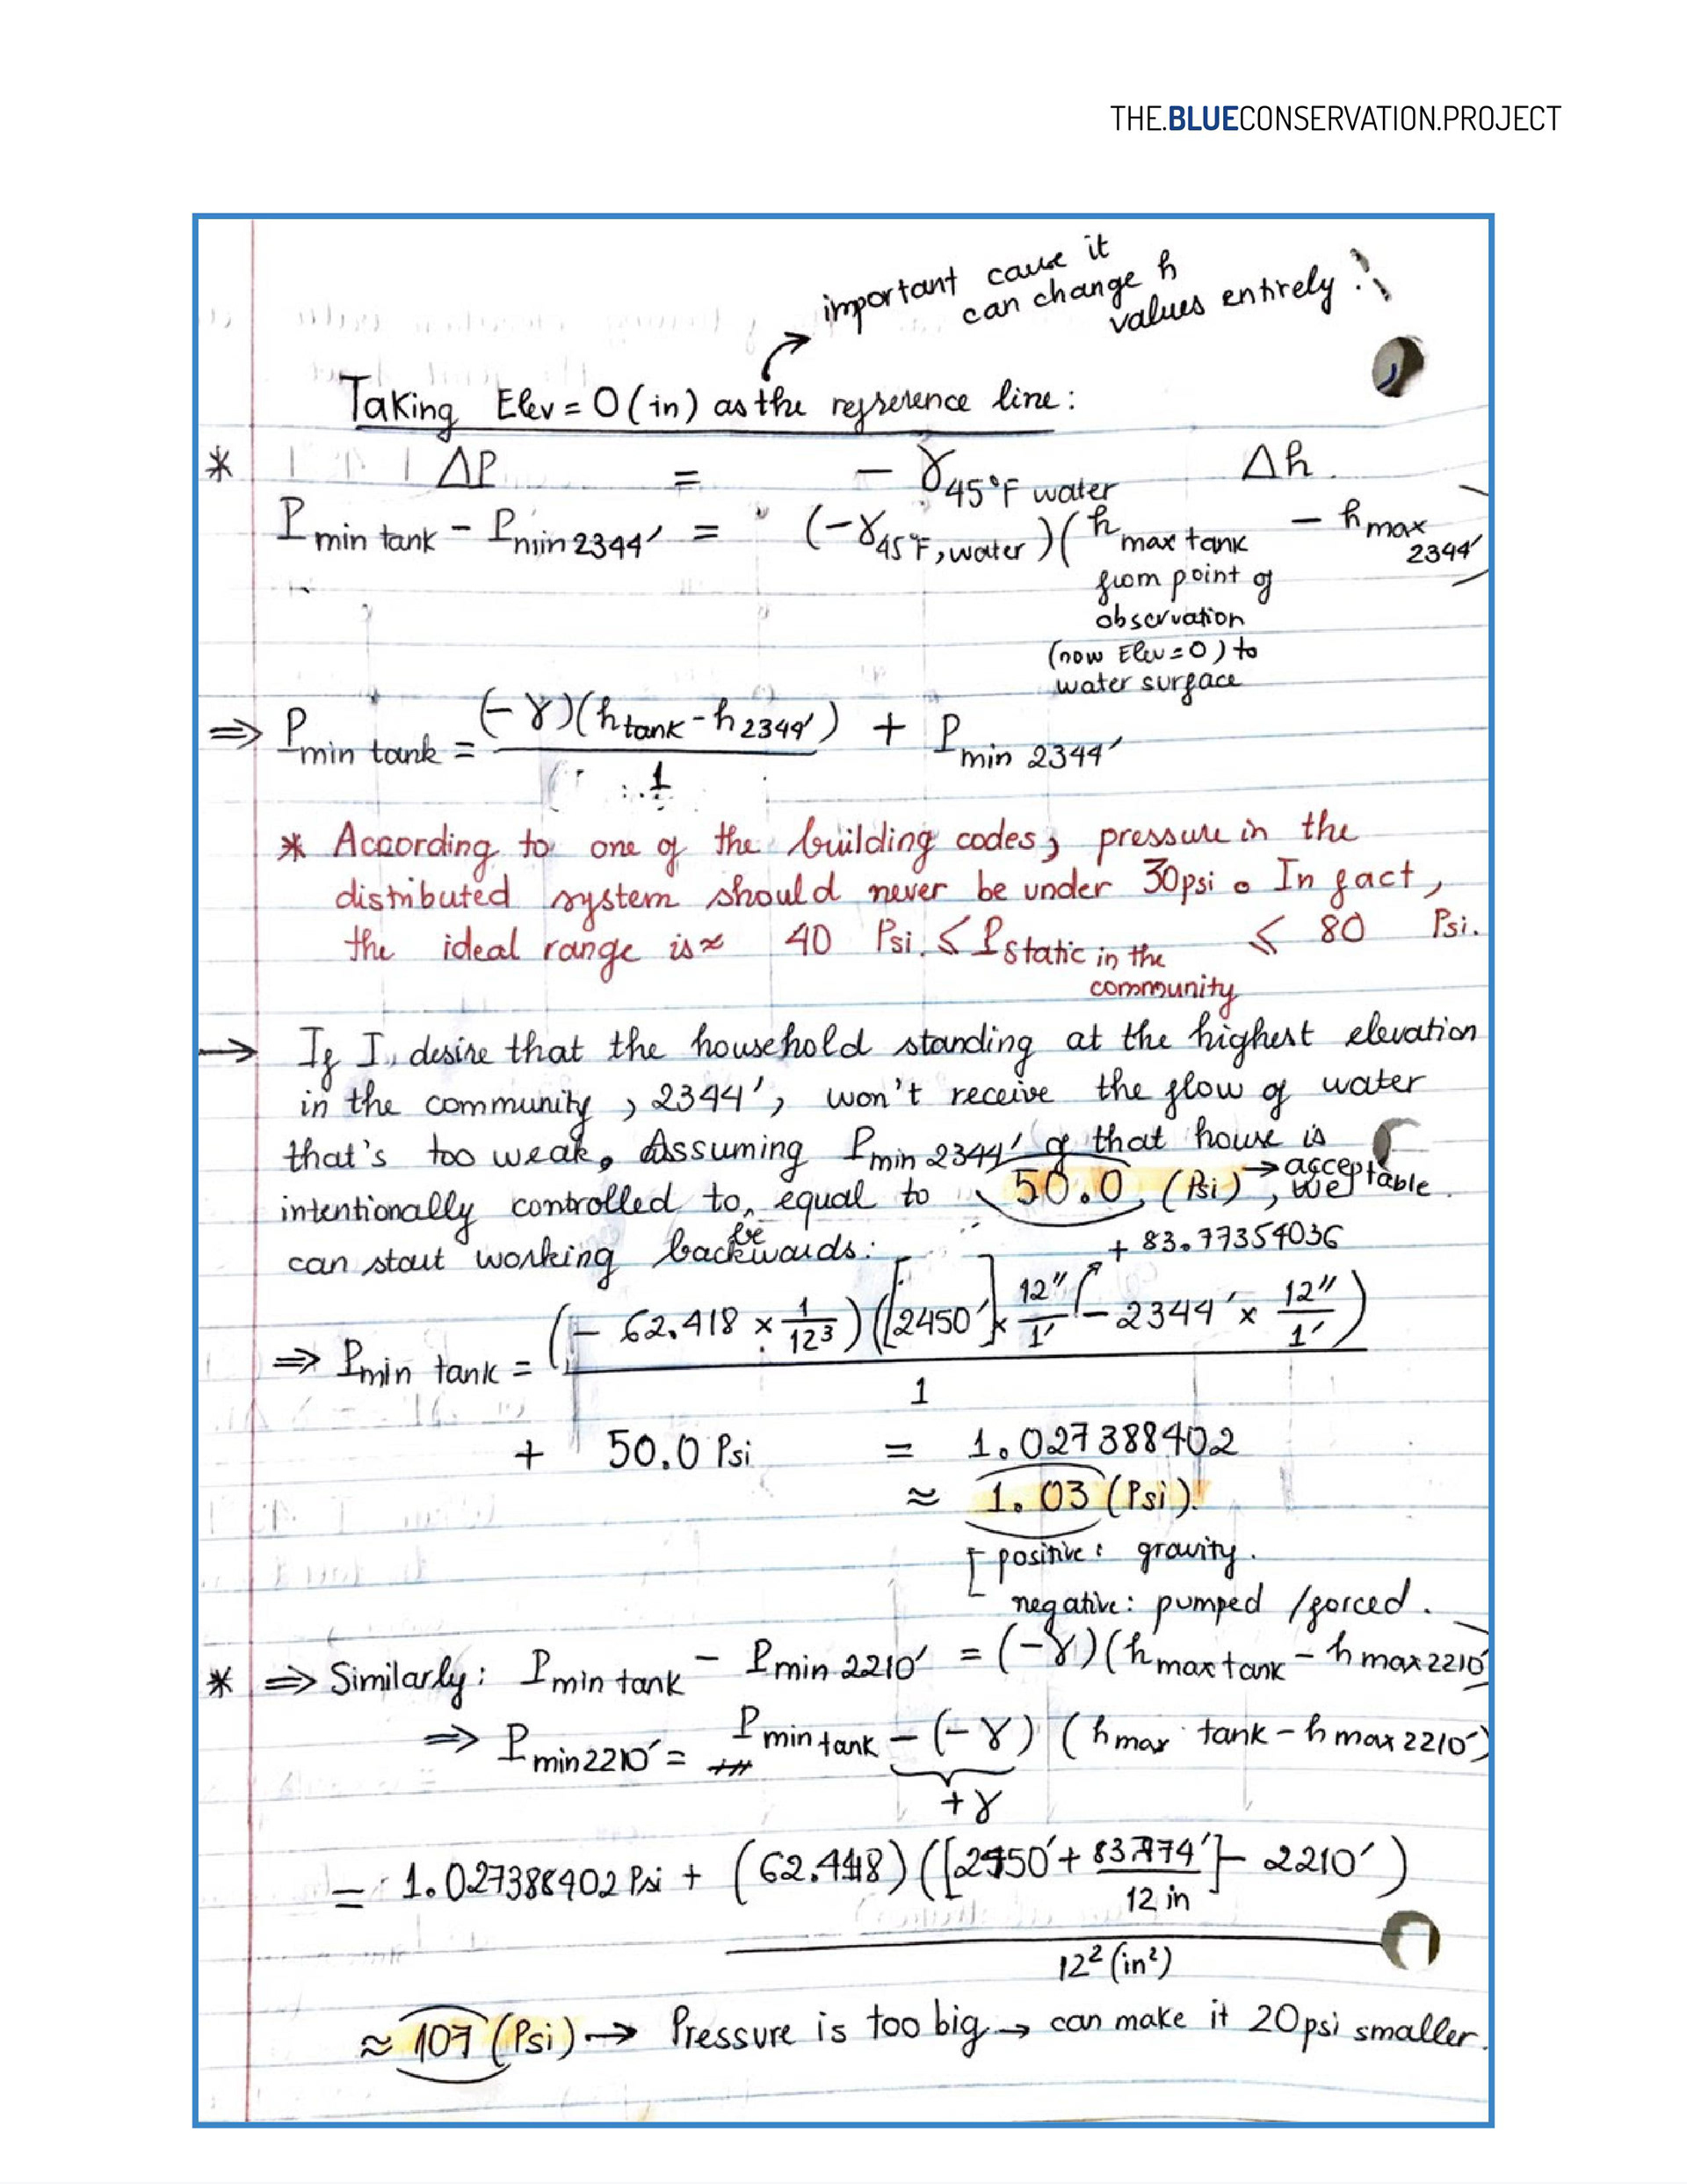 THE.BLUECONSERVATION.PROJECT
important cause it
can change h
values entirely !
Taking Elev = 0 (in) as the reference line :
* ΔP = - γ45°F water Δh
Pmin tank - Pmin 2344' = (-γ45°F, water)(hmax tank - hmax 2344')
from point of
observation
(now Elev = 0) to
water surface
=> Pmin tank = (-γ)(htank - h2344') / 1 + Pmin 2344'
* According to one of the building codes, pressure in the
distributed system should never be under 30psi. In fact,
the ideal range is ≈ 40 Psi ≤ Pstatic in the community ≤ 80 Psi.
→ If I desire that the household standing at the highest elevation
in the community, 2344', won't receive the flow of water
that's too weak. Assuming Pmin 2344' of that house is
intentionally controlled to be equal to 50.0 (Psi) → acceptable, we
can start working backwards:
+ 83.77354036
=> Pmin tank = (- 62.418 × 1/12³)([2450'] × 12"/1' - 2344' × 12"/1') / 1
+ 50.0 Psi = 1.027388402
≈ 1.03 (Psi).
positive : gravity.
negative : pumped / forced.
* => Similarly : Pmin tank - Pmin 2210' = (-γ)(hmax tank - hmax 2210')
=> Pmin 2210' = Pmin tank - (-γ) (hmax tank - hmax 2210')
+γ
= 1.027388402 Psi + (62.418)([2450' + 83.774'/12 in] - 2210') / 12² (in²)
≈ 107 (Psi) → Pressure is too big → can make it 20psi smaller.